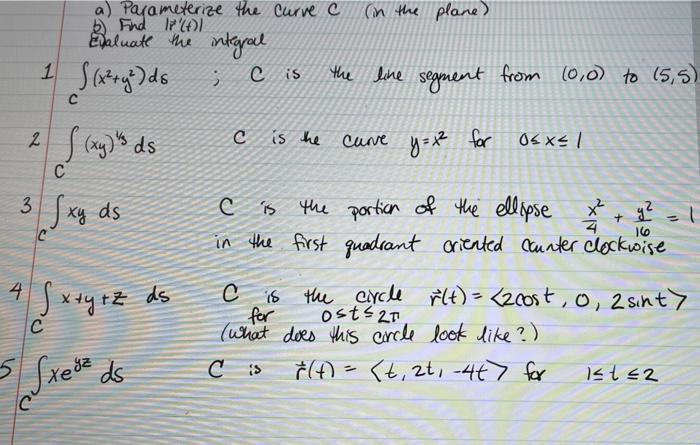 a) Parameterize the curve C (in the plane)
b) Find |r'(t)|
Evaluate the integral
1 ∫_C (x²+y²) ds ; C is the line segment from (0,0) to (5,5)
2 ∫_C (xy)^(1/3) ds C is the curve y=x² for 0≤x≤1
3 ∫_C xy ds C is the portion of the ellipse x²/4 + y²/16 = 1
in the first quadrant oriented counter clockwise
4 ∫_C x+y+z ds C is the circle r⃗(t) = <2cost, 0, 2sint>
for 0≤t≤2π
(what does this circle look like?)
5 ∫_C xe^(yz) ds C is r⃗(t) = <t, 2t, -4t> for 1≤t≤2